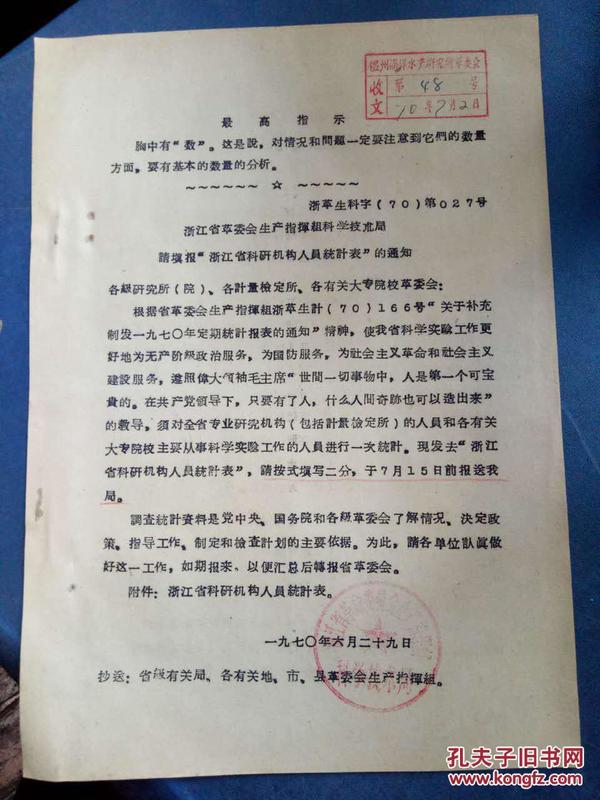 温州海洋水产研究所革委会
收文 第 48 号
70年7月2日
最高指示
胸中有“数”。这是說，对情况和問題一定要注意到它們的数量
方面，要有基本的数量的分析。
～～～～～～ ☆ ～～～～～
浙革生科字(70)第027号
浙江省革委会生产指揮組科学技朮局
請填报“浙江省科研机构人員統計表”的通知
各級研究所（院）、各計量檢定所、各有关大专院校革委会：
根据省革委会生产指揮組浙革生計(70)166号“关于补充
制发一九七〇年定期統計报表的通知”精神，使我省科学实驗工作更
好地为无产阶级政治服务，为国防服务，为社会主义革命和社会主义
建設服务，遵照偉大领袖毛主席“世間一切事物中，人是第一个可宝
貴的。在共产党領导下，只要有了人，什么人間奇跡也可以造出来”
的教导，须对全省专业研究机构（包括計量檢定所）的人員和各有关
大专院校主要从事科学实驗工作的人員进行一次統計。现发去“浙江
省科研机构人員統計表”，請按式填写二分，于7月15日前报送我
局。
調查統計資料是党中央、国务院和各級革委会了解情况、决定政
策、指导工作、制定和檢查計划的主要依据。为此，請各单位訃眞做
好这一工作，如期报来、以便汇总后轉报省革委会。
附件：浙江省科研机构人員統計表。
一九七〇年六月二十九日
科学技术局
抄送：省級有关局、各有关地、市、县革委会生产指揮組。
孔夫子旧书网
www.kongfz.com